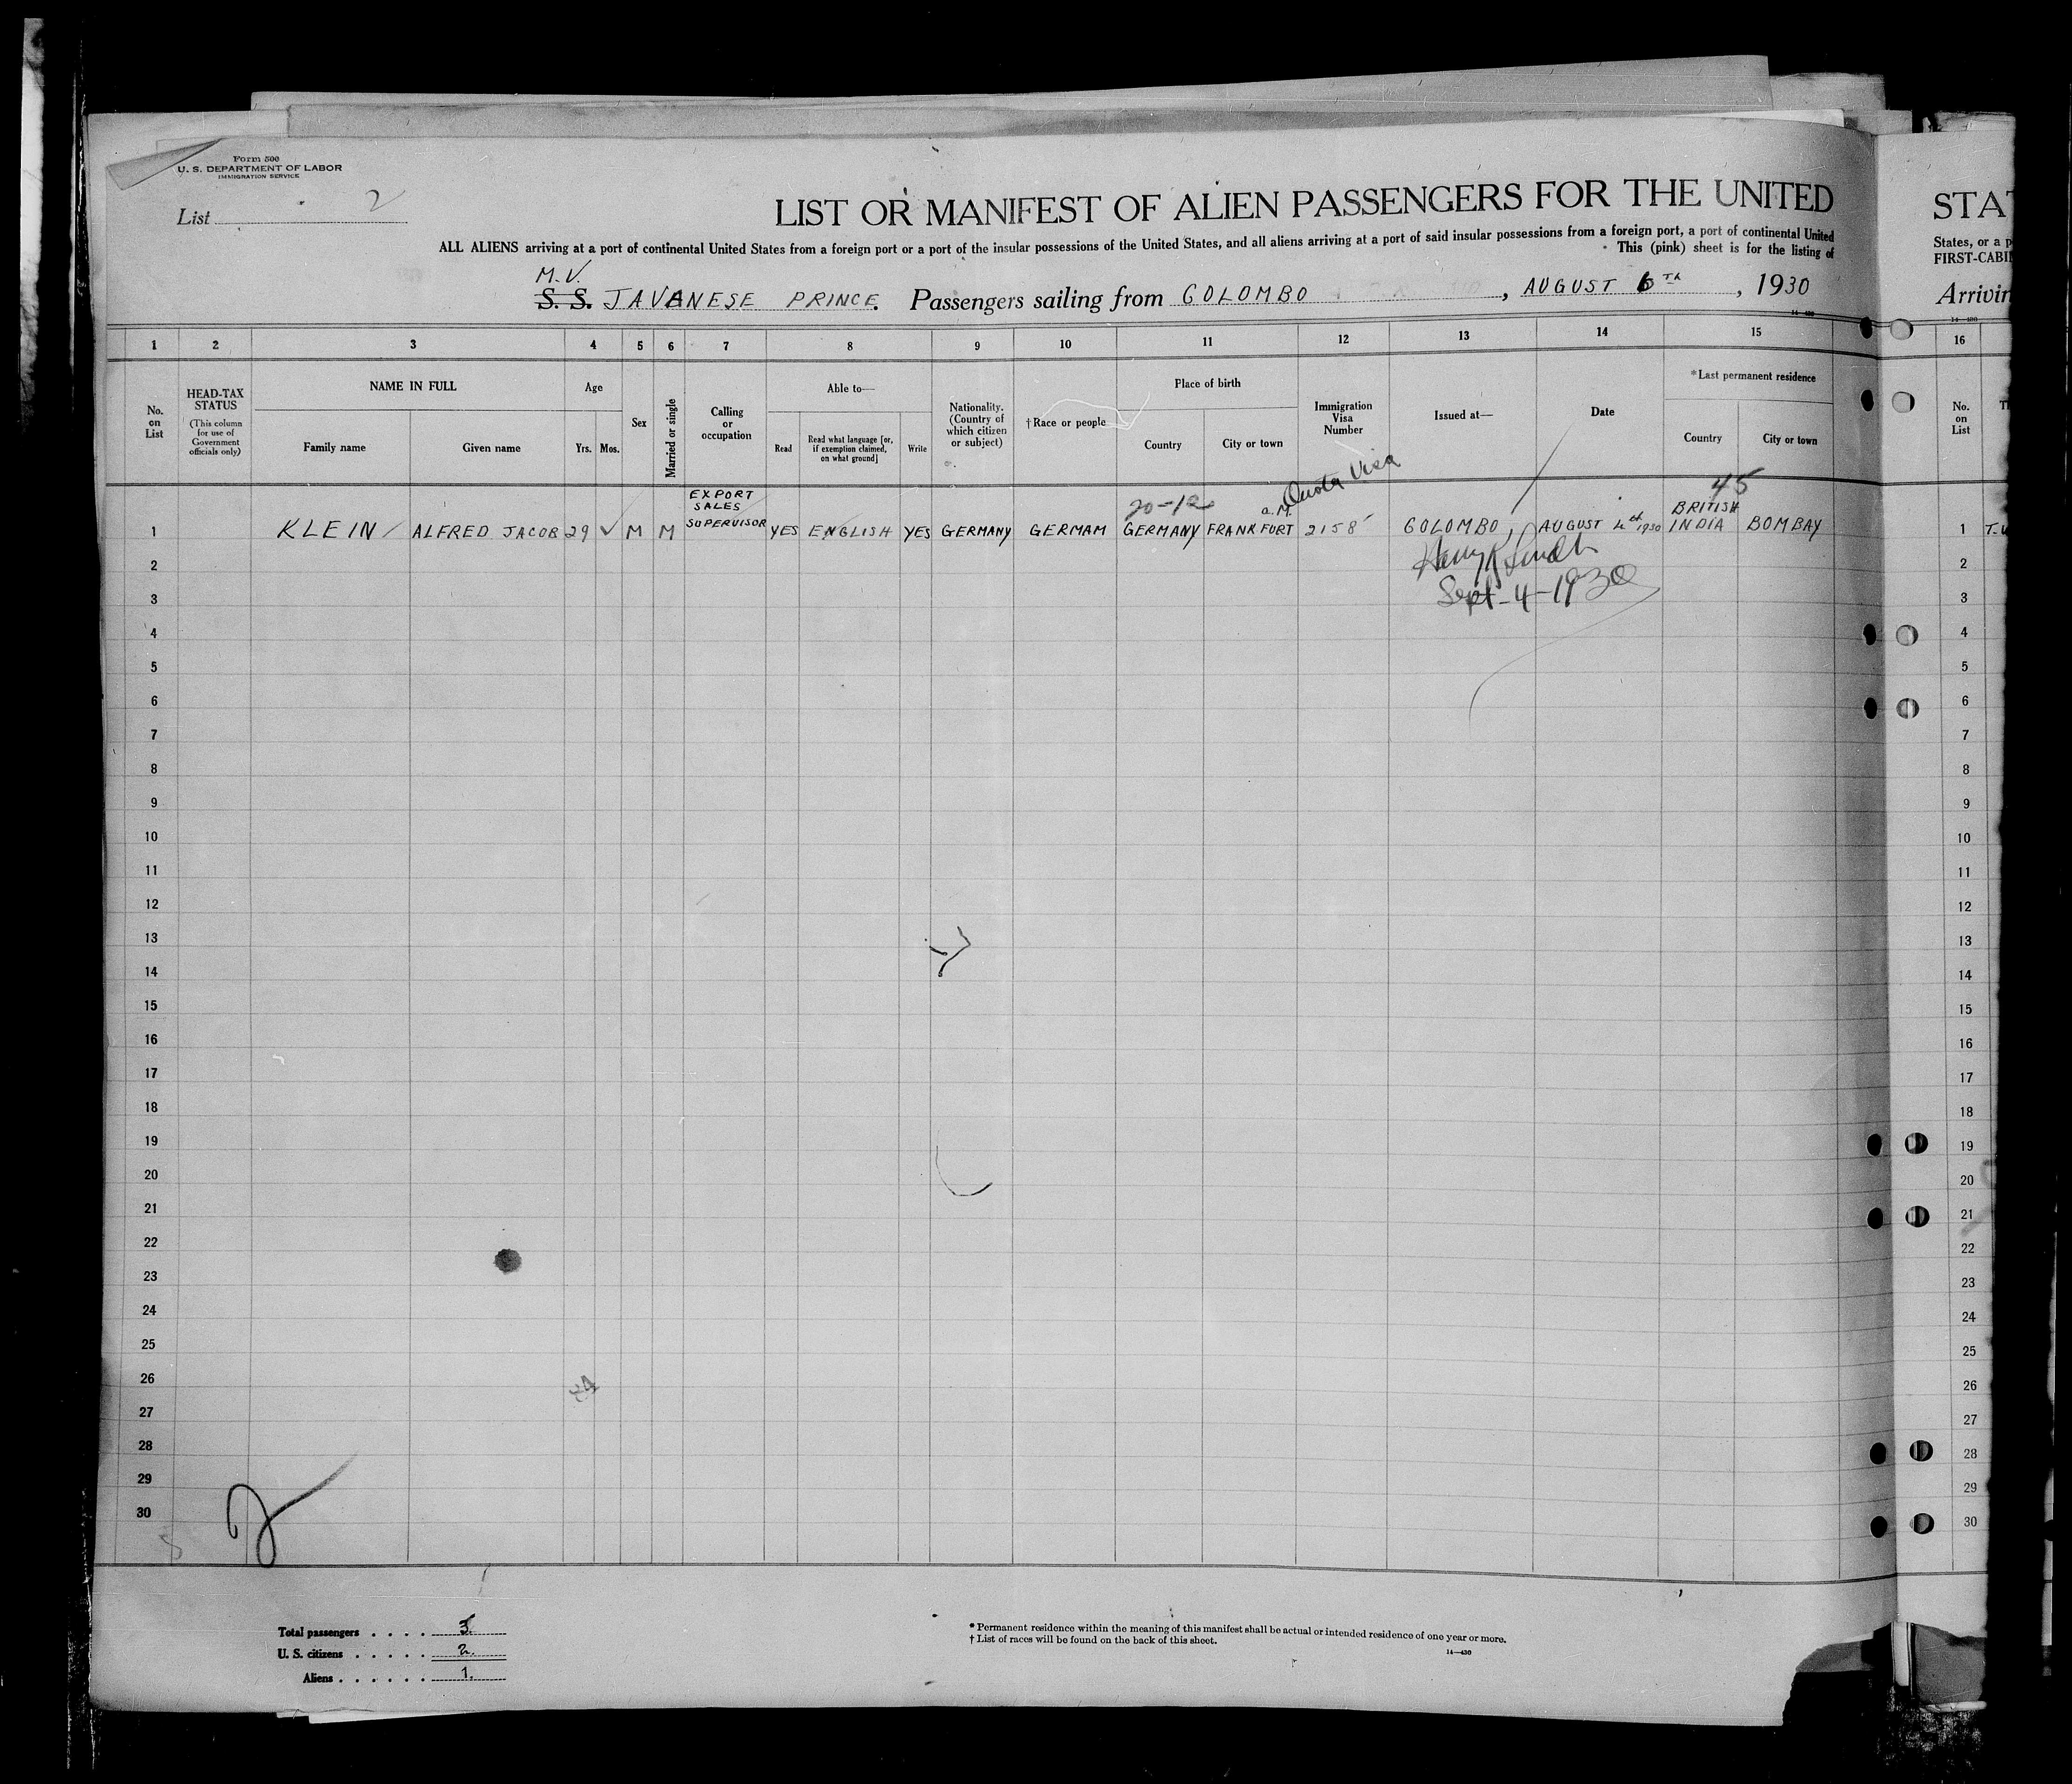 Form 500
U. S. DEPARTMENT OF LABOR
IMMIGRATION SERVICE
List 2
LIST OR MANIFEST OF ALIEN PASSENGERS FOR THE UNITED
ALL ALIENS arriving at a port of continental United States from a foreign port or a port of the insular possessions of the United States, and all aliens arriving at a port of said insular possessions from a foreign port, a port of continental United
This (pink) sheet is for the listing of
M.V.
S. S. JAVANESE PRINCE. Passengers sailing from COLOMBO, AUGUST 6TH, 1930
14—430
1 2 3 4 5 6 7 8 9 10 11 12 13 14 15
No. on List
HEAD-TAX STATUS
(This column for use of Government officials only)
NAME IN FULL
Family name
Given name
Age
Yrs.
Mos.
Sex
Married or single
Calling or occupation
Able to—
Read
Read what language [or, if exemption claimed, on what ground]
Write
Nationality. (Country of which citizen or subject)
†Race or people
Place of birth
Country
City or town
Immigration Visa Number
Issued at—
Date
*Last permanent residence
Country
City or town
20-12
Quota Visa
45
1 KLEIN ALFRED JACOB 29 ✓ M M EXPORT SALES SUPERVISOR YES ENGLISH YES GERMANY GERMAM GERMANY FRANKFURT a.M. 2158 COLOMBO, AUGUST 4th 1930 BRITISH INDIA BOMBAY
Sept-4-1930
2
3
4
5
6
7
8
9
10
11
12
13
14
15
16
17
18
19
20
21
22
23
24
25
26
27
28
29
30
Total passengers . . . . 3.
U. S. citizens . . . . . 2.
Aliens . . . . . . 1.
* Permanent residence within the meaning of this manifest shall be actual or intended residence of one year or more.
† List of races will be found on the back of this sheet.
14—430
STAT
States, or a p
FIRST-CABI
Arrivin
14—430
16
No. on List
1
2
3
4
5
6
7
8
9
10
11
12
13
14
15
16
17
18
19
20
21
22
23
24
25
26
27
28
29
30